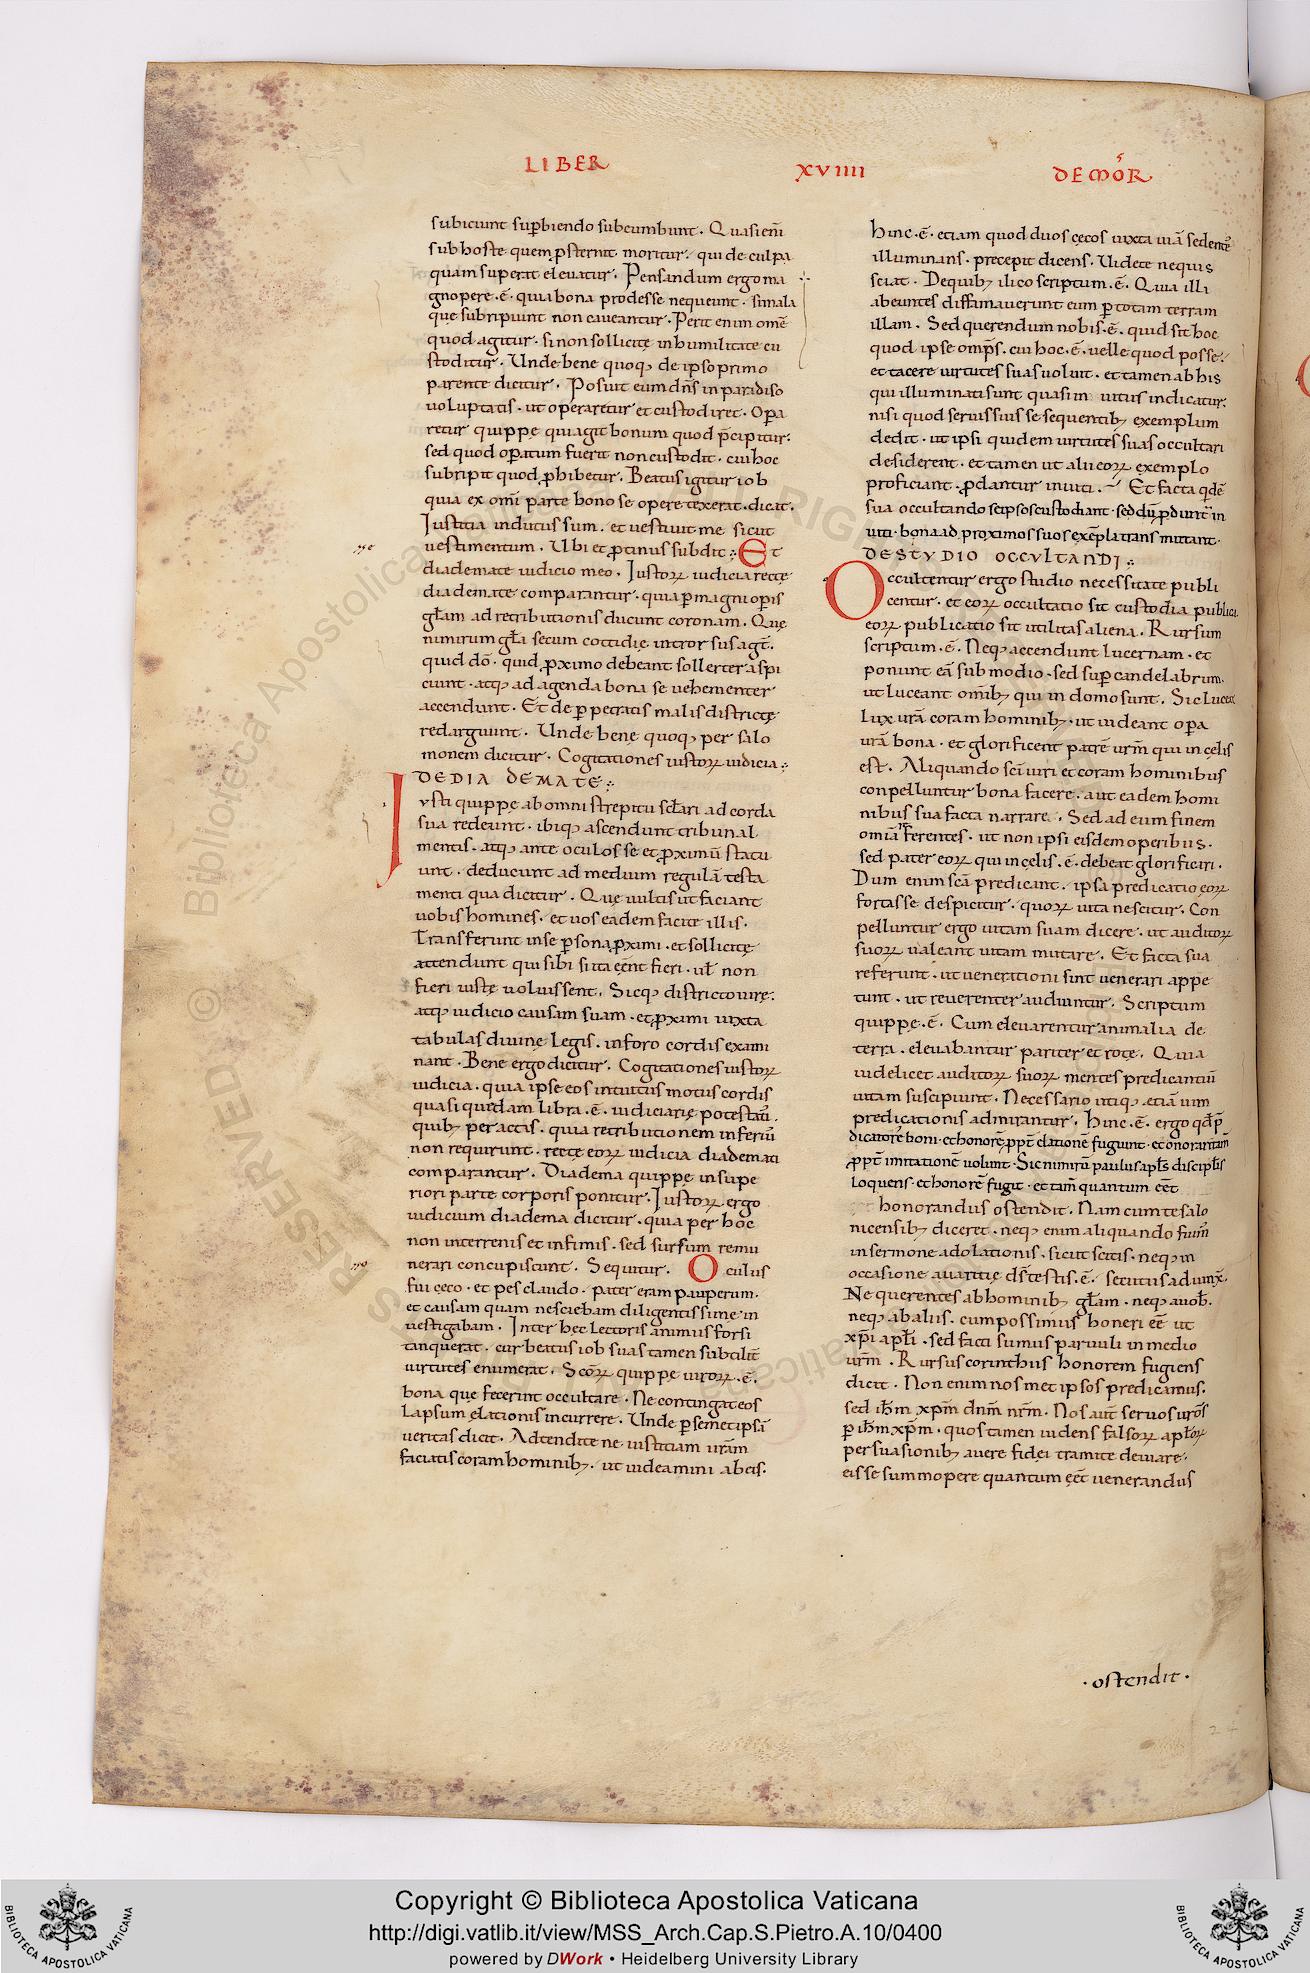 LIBER XVIIII DE MOR̄
subiciunt sup̄biendo subcumbunt. Quasi eni̅
sub hoste quem p̱sternit moritur. qui de culpa
quam superat eleuatur. Pensandum ergo ma
gnopere .ē. quia bona prodesse nequeunt. si mala
que subripiunt non caueantur. Perit enim om̅e
quod agitur. si non sollicitę in humilitate cu
stoditur. Unde bene quoq; de ipso primo
parente dicitur. Posuit eum dn̅s in paradiso
uoluptatis. ut operaretur et custodiret. Opa̱
retur quippę qui agit bonum quod p̄cipitur.
sed quod op̱atum fuerit non custodit. cui hoc
subripit quod p̱hibetur. Beatus igitur iob
quia ex om̅i parte bono se opere texerat. dicat.
Iustitia indutus sum. et uestiuit me sicut
uestimentum. Ubi et p̱tinus subdit. Et
diademate iudicio meo. Iustoꝝ iudicia rectę
diademate comparantur. quia p̱ magni op̱is
gl̅am ad retributionis ducunt coronam. Que̜
nimirum gl̅a secum cottidię introrsus agt̅.
quid dō. quid p̱ximo debeant sollerter aspi
ciunt. atq; ad agenda bona se uehementer
accendunt. Et de p̱petratis malis districtę
redarguunt. Unde benę quoq; per salo
monem dicitur. Cogitationes iustoꝝ iudicia.
DE DIADEMATE.
Iusti quippę ab omni strepitu scl̅ari ad corda
sua redeunt. ibiq; ascendunt tribunal
mentis. atq; ante oculos se et p̱ximū statu
unt. deducunt ad medium regulā testa
menti qua dicitur. Quę uultis ut faciant
uobis homines. et uos eadem facite illis.
Transferunt in se p̱sonā p̱ximi. et sollicitę
attendunt qui sibi si ita ee̅nt fieri. ul̅ non
fieri iustę uoluissent. Sicq; districto iurę.
atq; iudicio causam suam. et p̱ximi iuxta
tabulas diuinę legis. in foro cordis exami
nant. Bene ergo dicitur. Cogitationes iustoꝝ
iudicia. quia ipse eos intuitus motus cordis
quasi quędam libra .ē. iudiciarię potestati̅.
quib; peractis. quia retributionem inferiū
non requirunt. rectę eoꝝ iudicia diademati
comparantur. Diadema quippę in supe
riori parte corporis ponitur. Iustoꝝ ergo
iudicium diadema dicitur. quia per hoc
non in terrenis et infimis. sed sursum remu
nerari concupiscunt. Sequitur. Oculus
fui cęco. et pes claudo. pater eram paup̱erum.
et causam quam nesciebam diligentissime in
uestigabam. Inter hęc lectoris animus forsi
tan querat. cur beatus iob suas tamen subtilit̅
uirtutes enumerat. Scōꝝ quippe uiroꝝ .ē.
bona quę fecerint occultare. Ne contingat eos
lapsum ęlationis incurrere. Unde p̱ semet ipsā
ueritas dicit. Adtendite ne iustitiam ur̅am
faciatis coram hominib;. ut uideamini ab eis.
Hinc .ē. etiam quod duos cęcos iuxta uiā sedente̅
illuminans. precepit dicens. Uidete ne quis
sciat. De quib; ilico scriptum .ē. Quia illi
abeuntes diffamauerunt eum p̱ totam terram
illam. Sed querendum nobis .ē. quid sit hoc
quod ipse omp̅s. cui hoc .ē. uelle quod posse.
et tacere uirtutes suas uoluit. et tamen ab his
qui illuminati sunt quasi in uitus indicatur.
nisi quod seruis suis se sequentib; exemplum
dedit. ut ipsi quidem uirtutes suas occultari
desiderent. et tamen ut alii eoꝝ exemplo
proficiant. p̱dantur inuiti. Et facta qi̅de̅
sua occultando se ipsos custodiant. sed dū p̱dunt̅ in
uiti. bona ad proximos suos exe̅pla transmittant.
DE STVDIO OCCVLTANDI.
Occultentur ergo studio necessitate publi
centur. et eoꝝ occultatio sit custodia publica.
eoꝝ publicatio sit utilitas aliena. Rursum
scriptum .ē. Neq; accendunt lucernam. et
ponunt eā sub modio. sed sup̱ candelabrum.
ut luceant omi̅b; qui in domo sunt. Sic luceat
lux ur̅a coram hominib;. ut uideant op̱a
ur̅a bona. et glorificent patrē ur̅m qui in cęlis
est. Aliquando sc̅i uiri et coram hominibus
conpelluntur bona facere. aut eadem homi
nibus sua facta narrare. Sed ad eum finem
omi̅a referentes. ut non ipsi eisdem operibus.
sed pater eoꝝ qui in cęlis .ē. debeat glorificari.
Dum enim sc̅a predicant. ipsa predicatio eoꝝ
fortasse despicitur. quoꝝ uita nescitur. Con
pelluntur ergo uitam suam dicere. ut auditoꝝ
suoꝝ ualeant uitam mutare. Et facta sua
referunt. ut uenerationi sint uenerari appe
tunt. ut reuerenter audiuntur. Scriptum
quippę .ē. Cum eleuarentur animalia de
terra. eleuabantur pariter et rotę. Quia
uidelicet auditoꝝ suoꝝ mentes predicantiū
uitam suscipiunt. Necessario utiq; etiā uim
predicationis admirantur. Hinc .ē. ergo qd̅ p̄
dicatore̅s boni. et honorē p̱pt̅ elationē fugiunt. et onorari tam̅
p̱pt̅ imitationē uolunt. Sic nimirū paulus apl̅s discipl̅is
loquens. et honorē fugit. et tam̅ quantum ee̅t
honorandus ostendit. Nam cum tesalo
nicensib; diceret. neq; enim aliquando fuim̅
in sermone adolationis. sicut scitis. neq; in
occasione auaritię ds̅ testis .ē. secutus adiunx̅.
Ne querentes ab hominib; gl̅am. neq; a uob̅.
neq; ab aliis. cum possimus honeri ee̅ ut
xp̅i apl̅i. sed facti sumus paruuli in medio
ur̅m. Rursus corinthiis honorem fugiens
dicit. Non enim nosmet ipsos predicamus.
sed ih̅m xp̅m dn̅m nr̅m. Nos aut̅ seruos uro̅s
p̱ ih̅m xp̅m. quos tamen uidens falsoꝝ apl̅oꝝ
persuasionib; a uere fidei tramite deuiare.
eis se summopere quantum ee̅t uenerandus
.ostendit.
24
Copyright © Biblioteca Apostolica Vaticana
http://digi.vatlib.it/view/MSS_Arch.Cap.S.Pietro.A.10/0400
powered by DWork • Heidelberg University Library
BIBLIOTECA APOSTOLICA VATICANA
BIBLIOTECA APOSTOLICA VATICANA